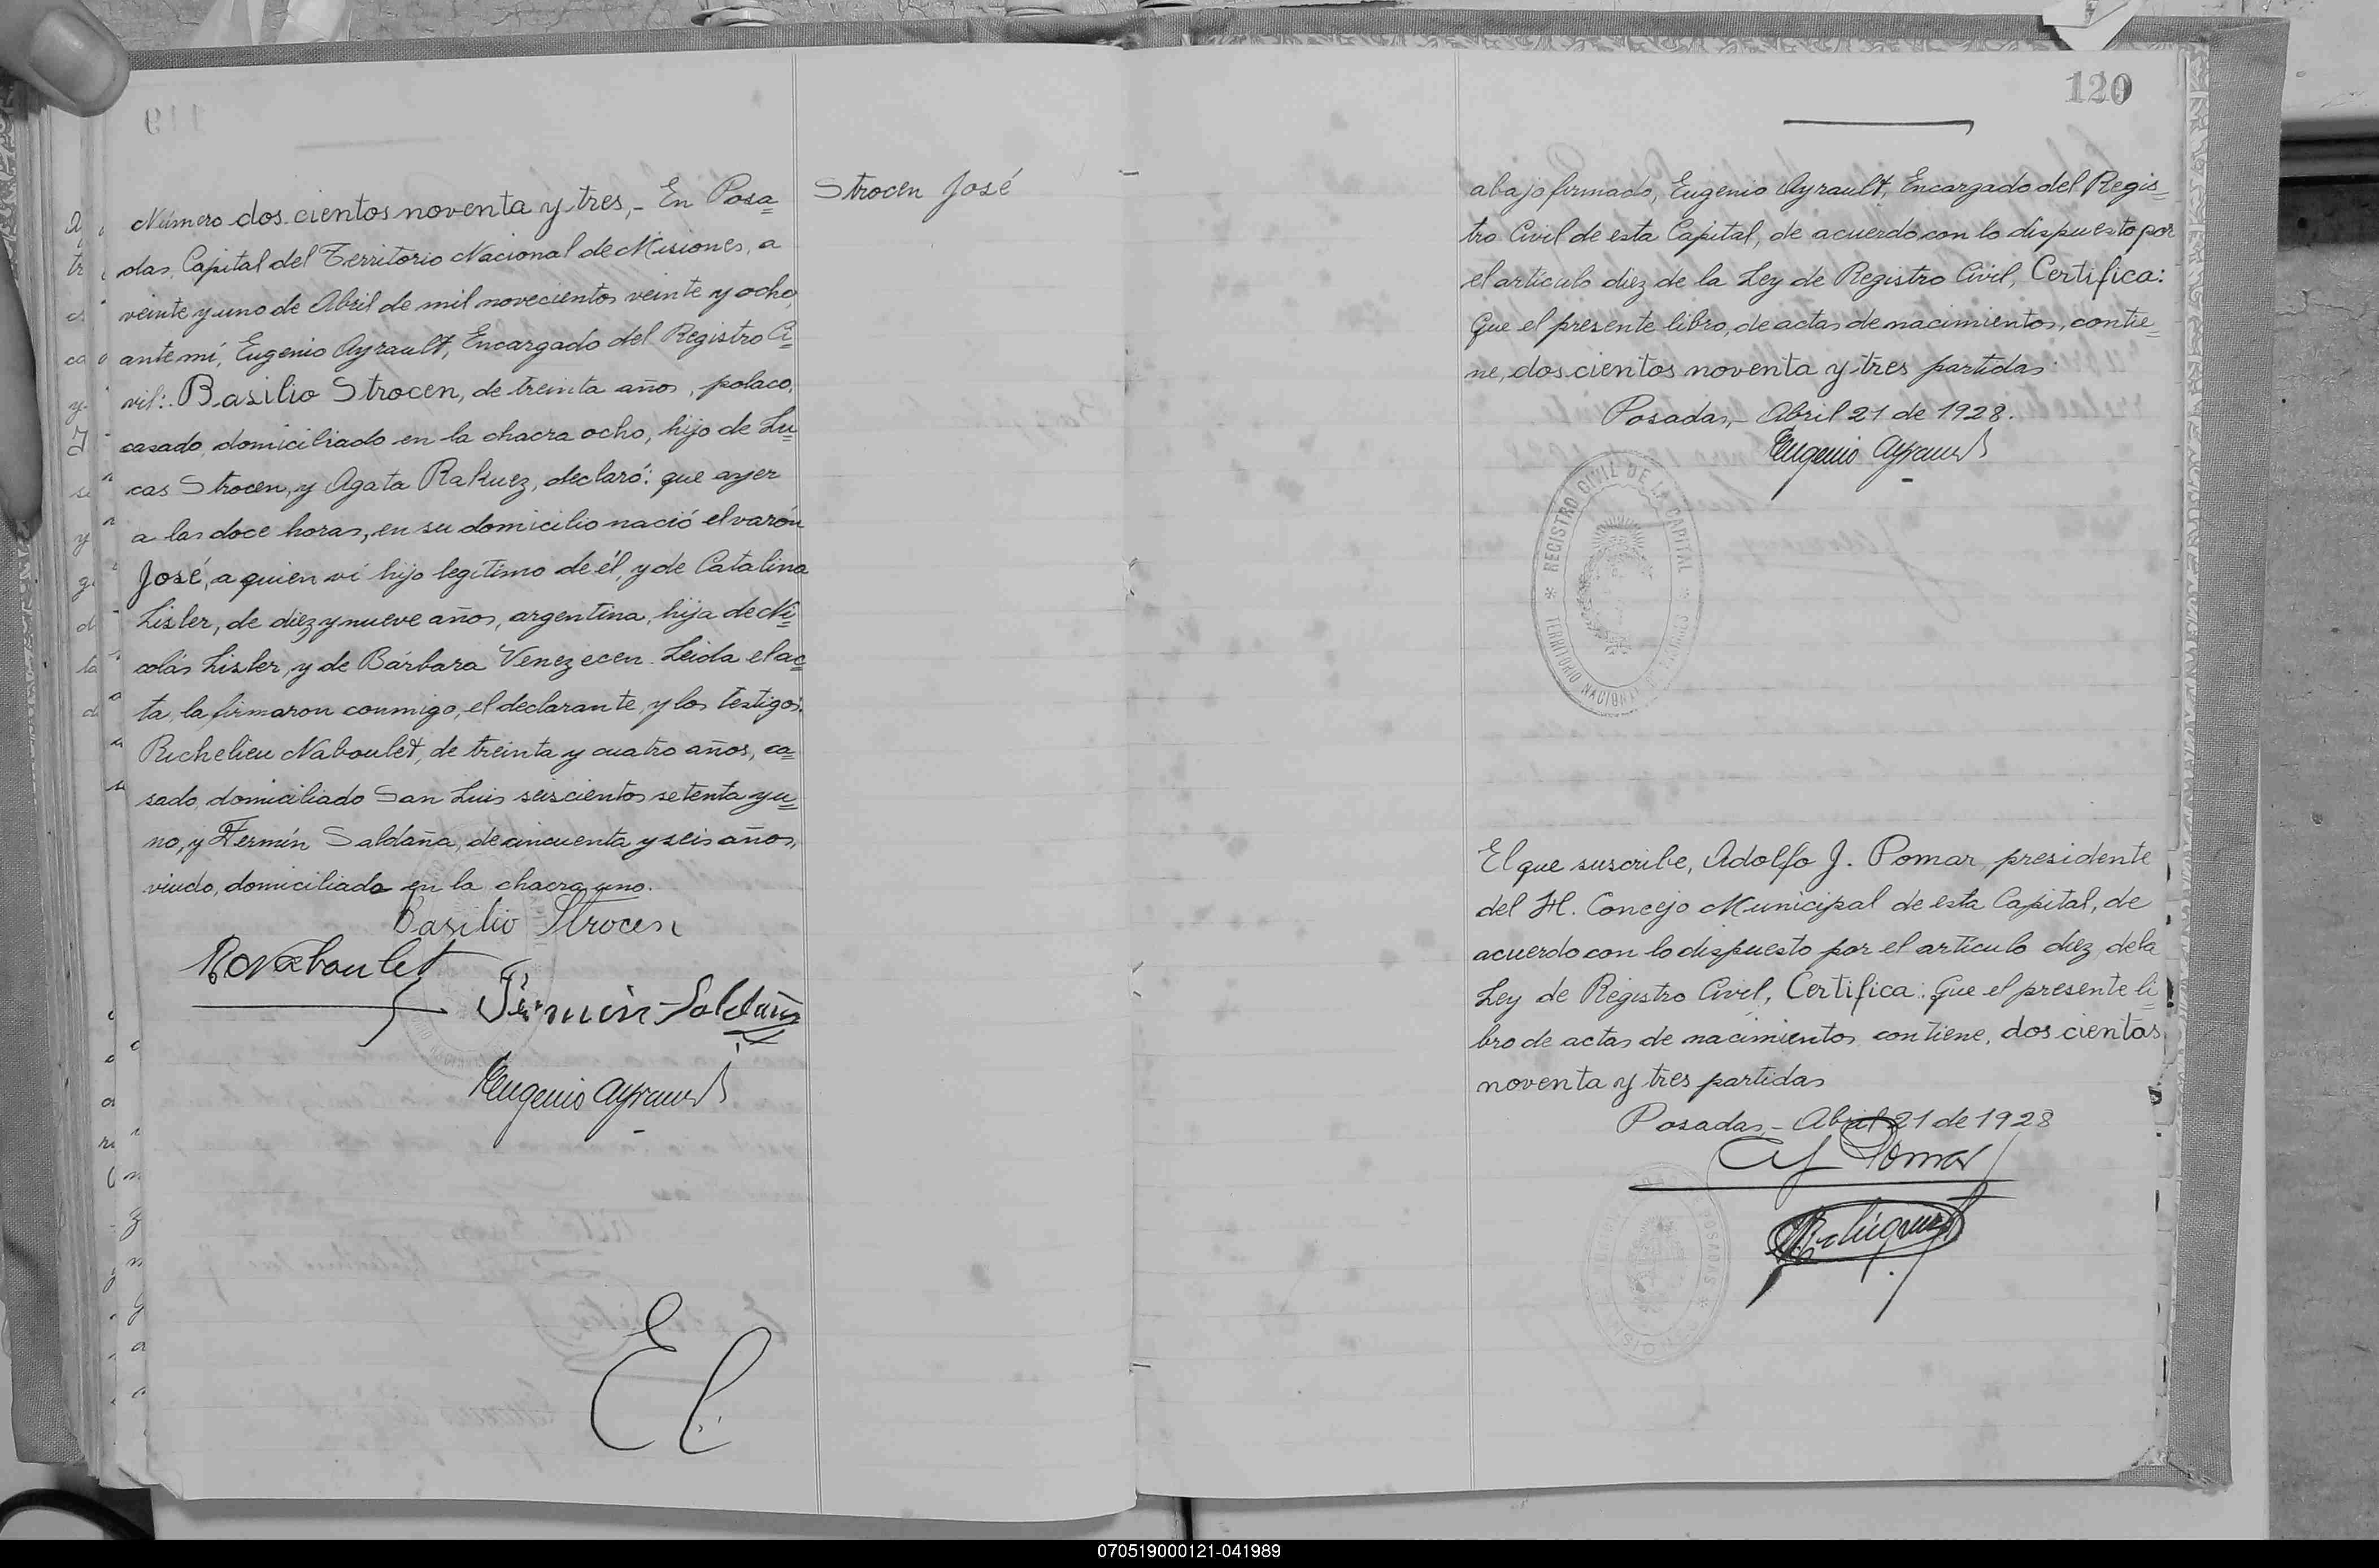 Número dos cientos noventa y tres,- En Posa=
das, Capital del Territorio Nacional de Misiones, a
veinte y uno de Abril de mil novecientos veinte y ocho,
ante mí, Eugenio Ayrault, Encargado del Registro Ci=
vil: Basilio Strocen, de treinta años, polaco,
casado, domiciliado en la chacra ocho, hijo de Lu=
cas Strocen, y Agata Rakuez, declaró: que ayer
a las doce horas, en su domicilio nació el varón
José, a quien ví hijo legítimo de él, y de Catalina
Lisler, de diez y nueve años, argentina, hija de Ni=
colás Lisler, y de Bárbara Venezecen. Leida el ac=
ta, la firmaron conmigo, el declarante, y los testigos:
Richelieu Naboulet, de treinta y cuatro años, ca=
sado, domiciliado San Luis seiscientos setenta y u=
no, y Fermín Saldaña, de cincuenta y seis años,
viudo, domiciliado en la chacra uno.
Basilio Strocen
RNaboulet
Fermin Saldaña
Eugenio Ayrault
El
Strocen José
120
abajo firmado, Eugenio Ayrault, Encargado del Regis=
tro Civil de esta Capital, de acuerdo con lo dispuesto por
el artículo diez de la Ley de Registro Civil, Certifica:
Que el presente libro, de actas de nacimientos, contie=
ne, dos cientos noventa y tres partidas.
Posadas,- Abril 21 de 1928.
Eugenio Ayrault
REGISTRO CIVIL DE LA CAPITAL
TERRITORIO NACIONAL DE MISIONES
El que suscribe, Adolfo J. Pomar, presidente
del H. Concejo Municipal de esta Capital, de
acuerdo con lo dispuesto por el artículo diez, de la
Ley de Registro Civil, Certifica: Que el presente li=
bro de actas de nacimientos contiene, dos cientas
noventa y tres partidas
Posadas,- Abril 21 de 1928
AJ Pomar
POSADAS
070519000121-041989